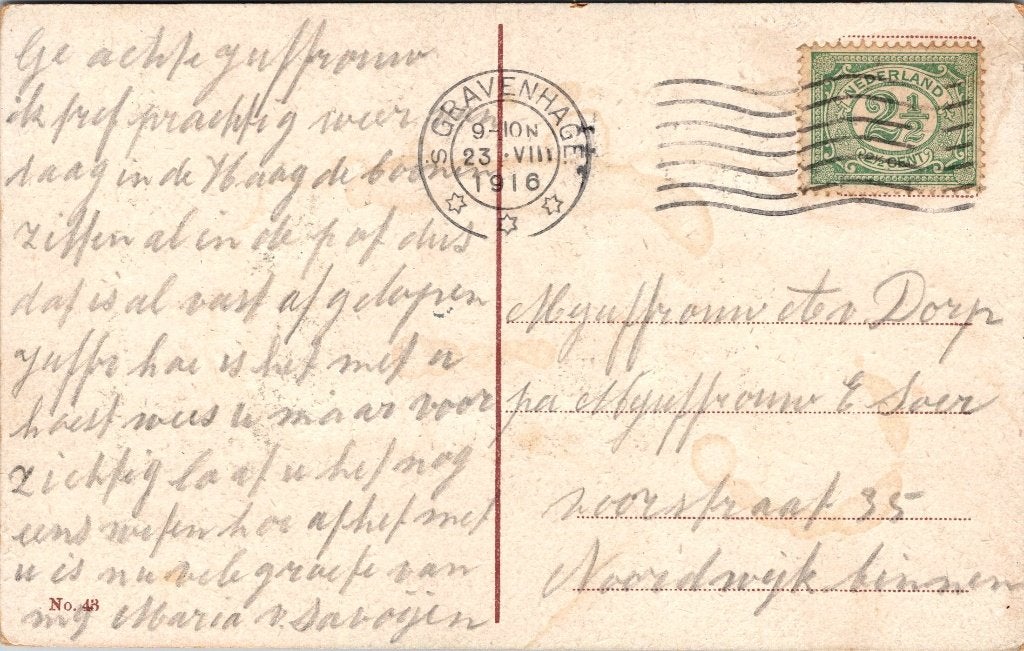 Ge achte juffrouw
ik tref prachtig weer van
daag in de Haag de boonen
zitten al in de pot dus
dat is al vast af gelopen
juffr hoe is het met u
hoest wees u maar voor
zichtig laat u het nog
eens weten hoe of het met
u is nu vele groete van
mij Maria v. Savoijen
No. 43
S GRAVENHAGE
9-10N
23 .VIII
1916
NEDERLAND
2½
2½ CENT
Mejuffrouw v. Dorp
pa Mejuffrouw E Soer
voorstraat 35
Noordwijk binnen